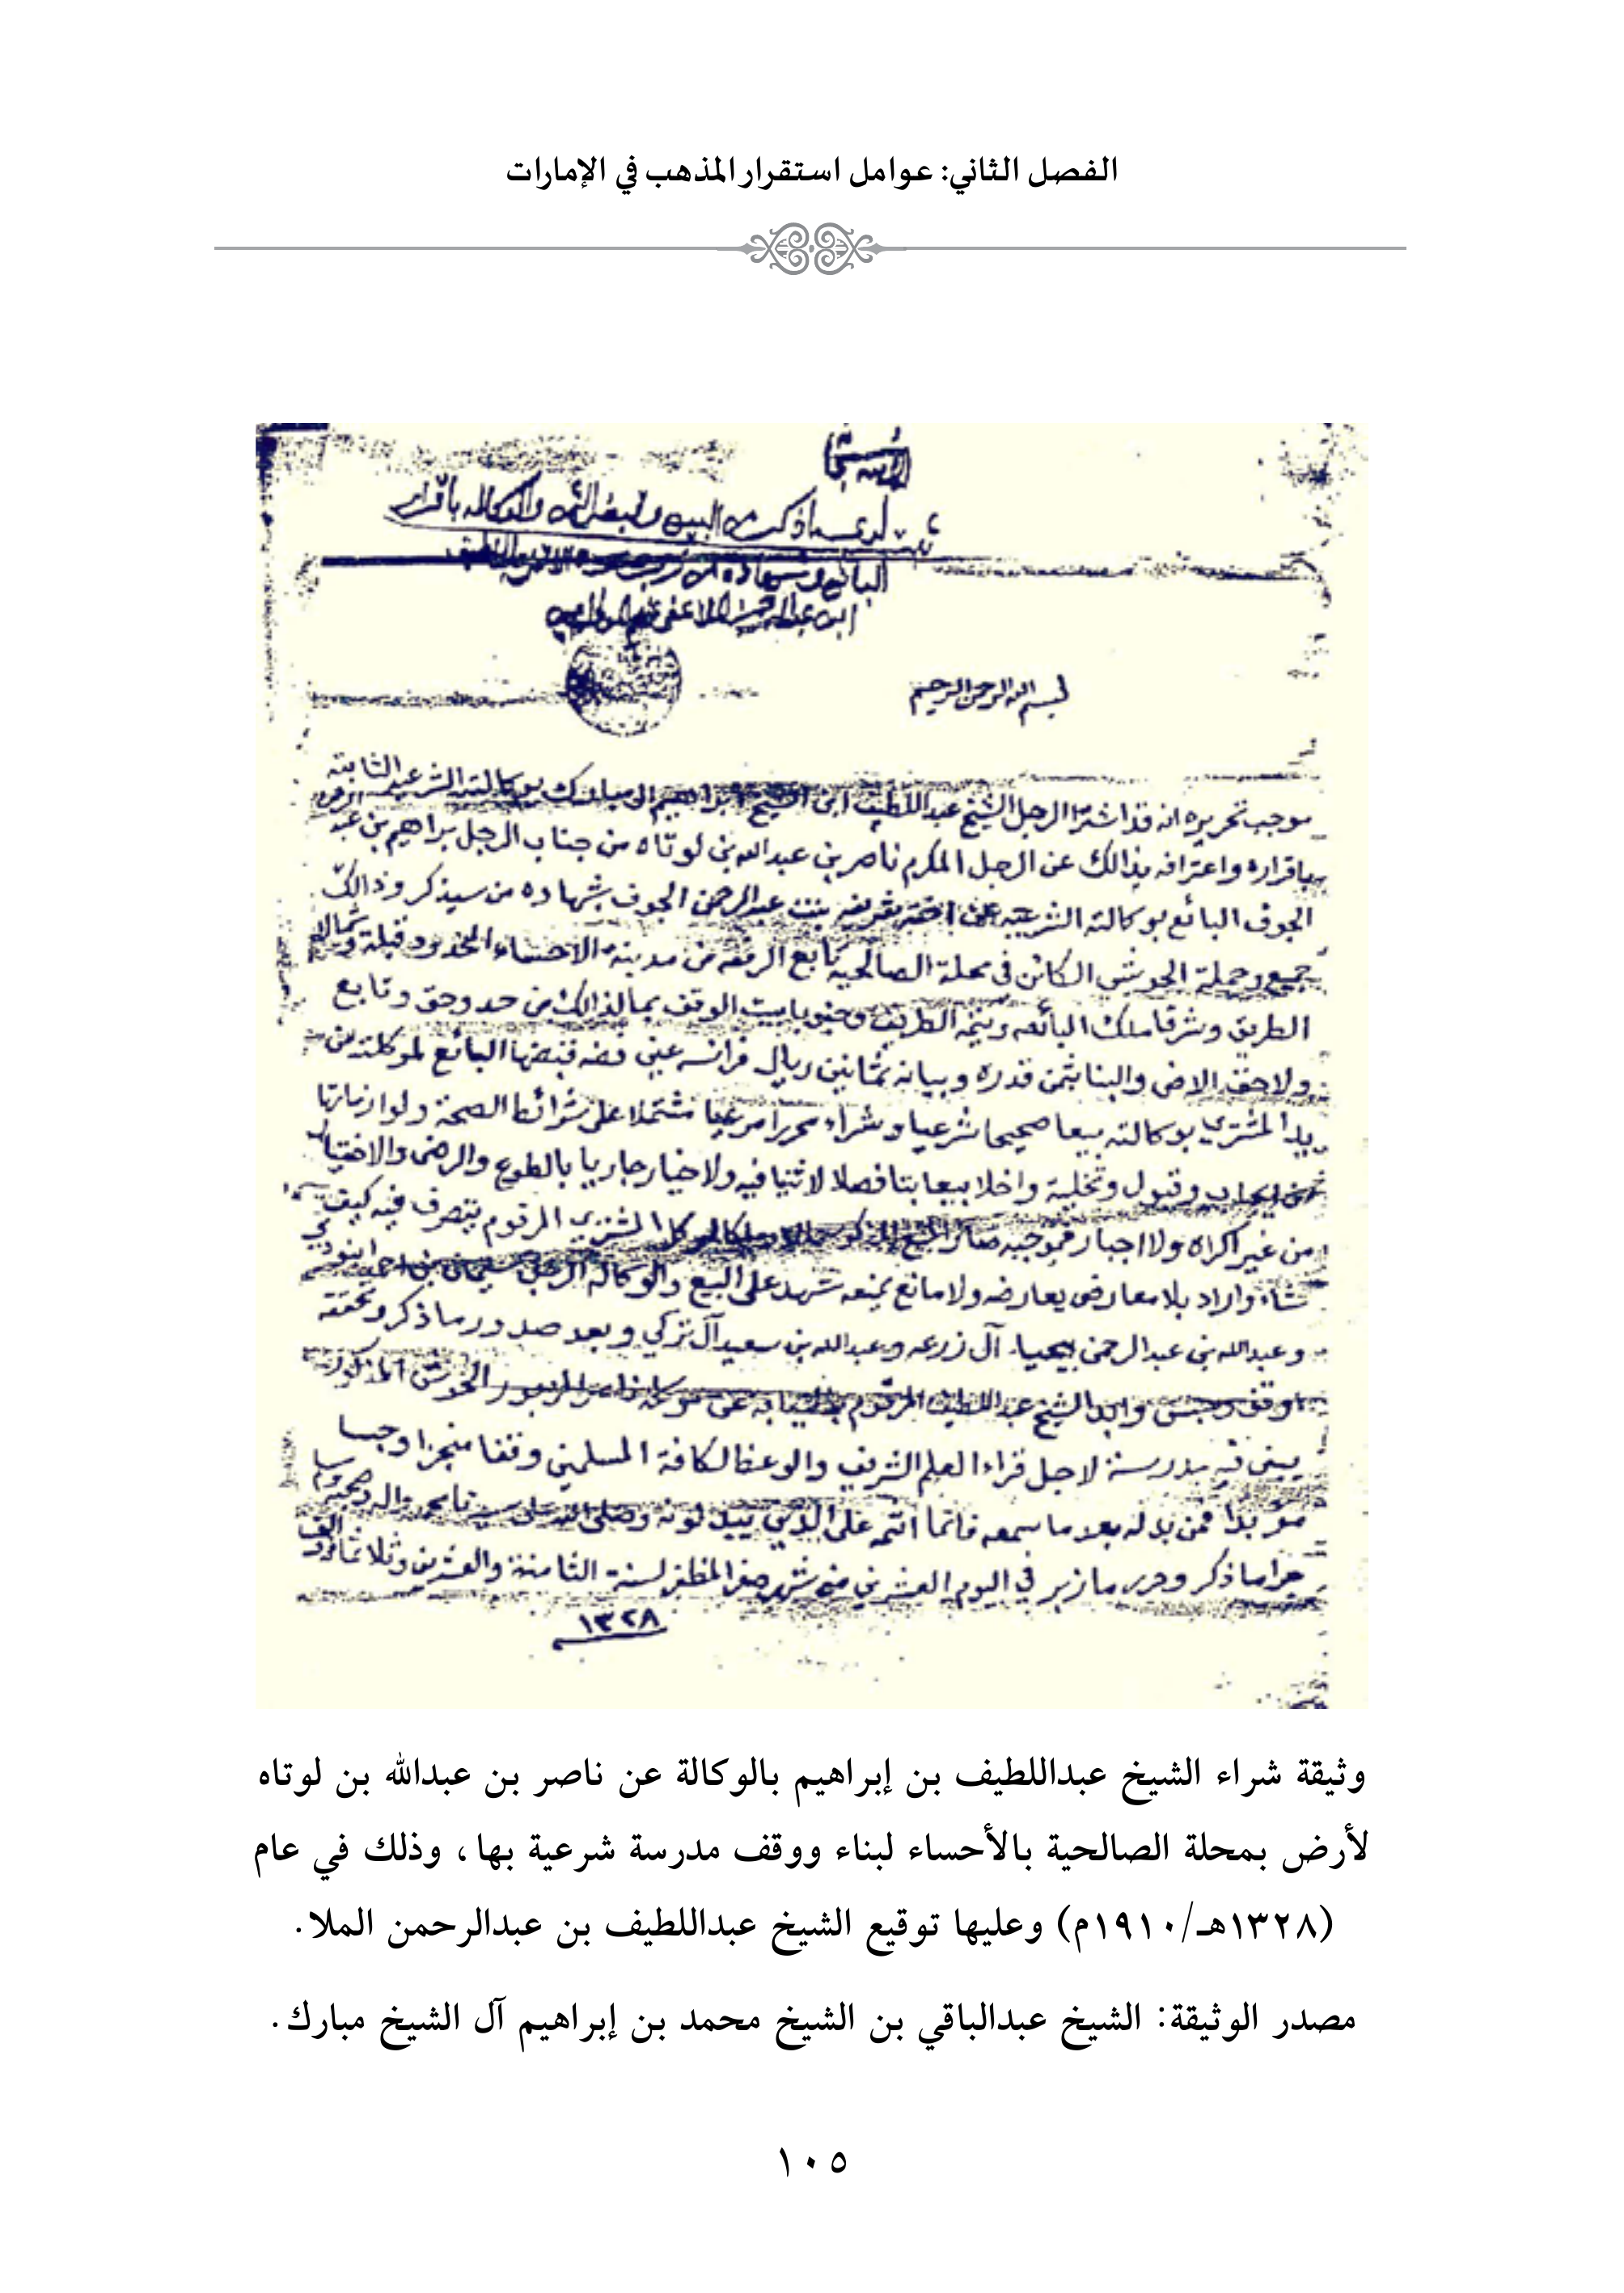 الفصل الثاني: عوامل استقرار المذهب في الإمارات
بسم الله الرحمن الرحيم
موجب تحريره انه قد اشترا الرجل الشيخ عبداللطيف ابن الشيخ ابراهيم ال مبارك بوكالته الشرعيه الثابته
باقراره واعترافه بذالك عن الرجل المكرم ناصر بن عبدالله بن لوتاه من جناب الرجل براهيم بن عبد الرحمن
الجوف البائع بوكالته الشرعيه عن اخته شريفه بنت عبدالرحمن الجوف بشهاده من سيذكر وذالك
جميع وجملة الحوش الكائن في محلة الصالحية تابع الرفعه من مدينة الاحساء المحدود قبلة وشمالا
الطريق وشرقا ملك البائعه ويتمه الطريق وجنوبا بيت الوقف بما لذالك من حد وحق وتابع
ولاحق الارض والبنا بثمن قدره وبيانه ثمانين ريال فرانسه عين فضه قبضها البائع لموكلته من
يد المشتري بوكالته بيعا صحيحا شرعيا وشراء محررا مرعيا مشتملا على شرائط الصحة ولوازماتها
من ايجاب وقبول وتخلية واخلا بيعا بتا فصلا لا ثنيا فيه ولا خيار جاريا بالطوع والرضى والاختيار
من غير اكراه ولا اجبار فبموجبه صار المبيع المذكور ملكا لموكل المشتري المرقوم يتصرف فيه كيف
شاء واراد بلا معارض يعارضه ولا مانع يمنعه شهد على البيع والوكاله الرجل سليمان بن احمد
وعبدالله بن عبدالرحمن بيحيا آل زرعه وعبدالله بن سعيد آل تركي وبعد صدور ما ذكر وتحققه
اوقف وحبس وابد الشيخ عبداللطيف المرقوم عن موكله ناصر المزبور الحوش المذكور
يبنى فيه مدرسة لاجل قراءة العلم الشريف والوعظ لكافة المسلمين وقفا منجزا وحبسا
مؤبدا فمن بدله بعد ما سمعه فانما اثمه على الذين يبدلونه وصلى الله على سيدنا محمد واله وصحبه وسلم
جرا ما ذكر وحرر ما زبر في اليوم العشرين من شهر صفر المظفر لسنة الثامنة والعشرين وثلاثمائة والف
١٣٢٨
وثيقة شراء الشيخ عبداللطيف بن إبراهيم بالوكالة عن ناصر بن عبدالله بن لوتاه
لأرض بمحلة الصالحية بالأحساء لبناء ووقف مدرسة شرعية بها، وذلك في عام
(١٣٢٨هـ/١٩١٠م) وعليها توقيع الشيخ عبداللطيف بن عبدالرحمن الملا.
مصدر الوثيقة: الشيخ عبدالباقي بن الشيخ محمد بن إبراهيم آل الشيخ مبارك.
١٠٥